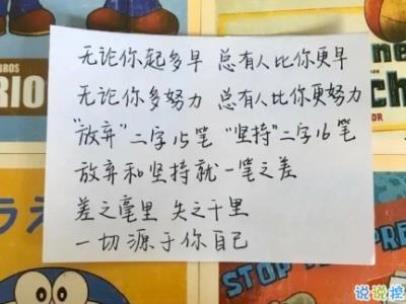 无论你起多早 总有人比你更早
无论你多努力 总有人比你更努力
"放弃"二字15笔 "坚持"二字16笔
放弃和坚持就一笔之差
差之毫里 失之千里
一切源于你自己
BROS
RIO
ine
ch
STOP
PRE
说说控